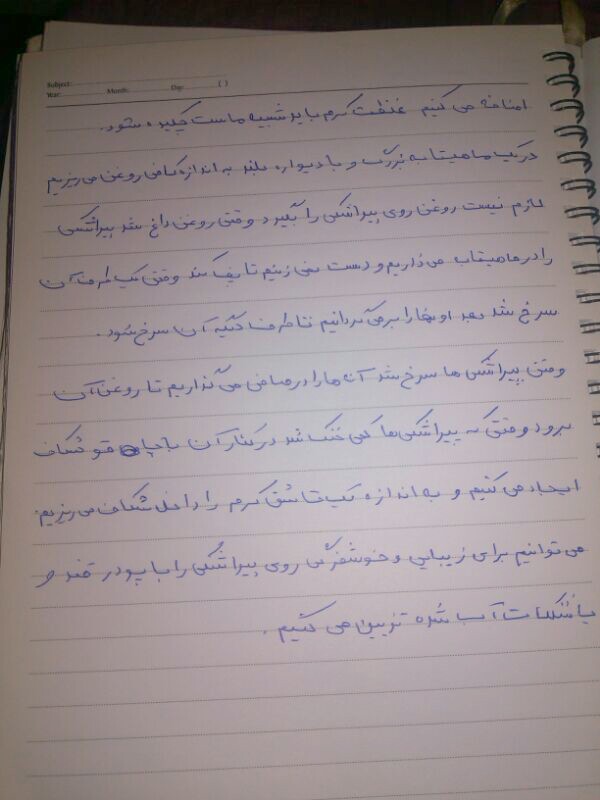 Subject:
Year: Month: Day: ( )
اضافه می کنیم غلظت کرم باید شبیه ماست چکیده شود.
در یک ماهیتابه بزرگ و با دیواره بلند به اندازه کافی روغن می ریزیم
لازم نیست روغن روی پیراشکی را بگیرد وقتی روغن داغ شد پیراشکی
را در ماهیتاب می ذاریم و دست نمی زنیم تا پف کند وقتی یک طرف آن
سرخ شد بعد اونها را بر می گردانیم تا طرف دیگه آن سرخ شود.
وقتی پیراشکی ها سرخ شد آن ها را در صافی می گذاریم تا روغن آن
برود وقتی که پیراشکی ها کمی خنک شد در کنار آن با چاقو شکاف
ایجاد می کنیم و به اندازه یک قاشق کرم را داخل شکاف می ریزیم
می توانیم برای زیبایی و خوشمزگی روی پیراشکی را با پودر قند و
یا شکلات آب شده تزیین می کنیم.